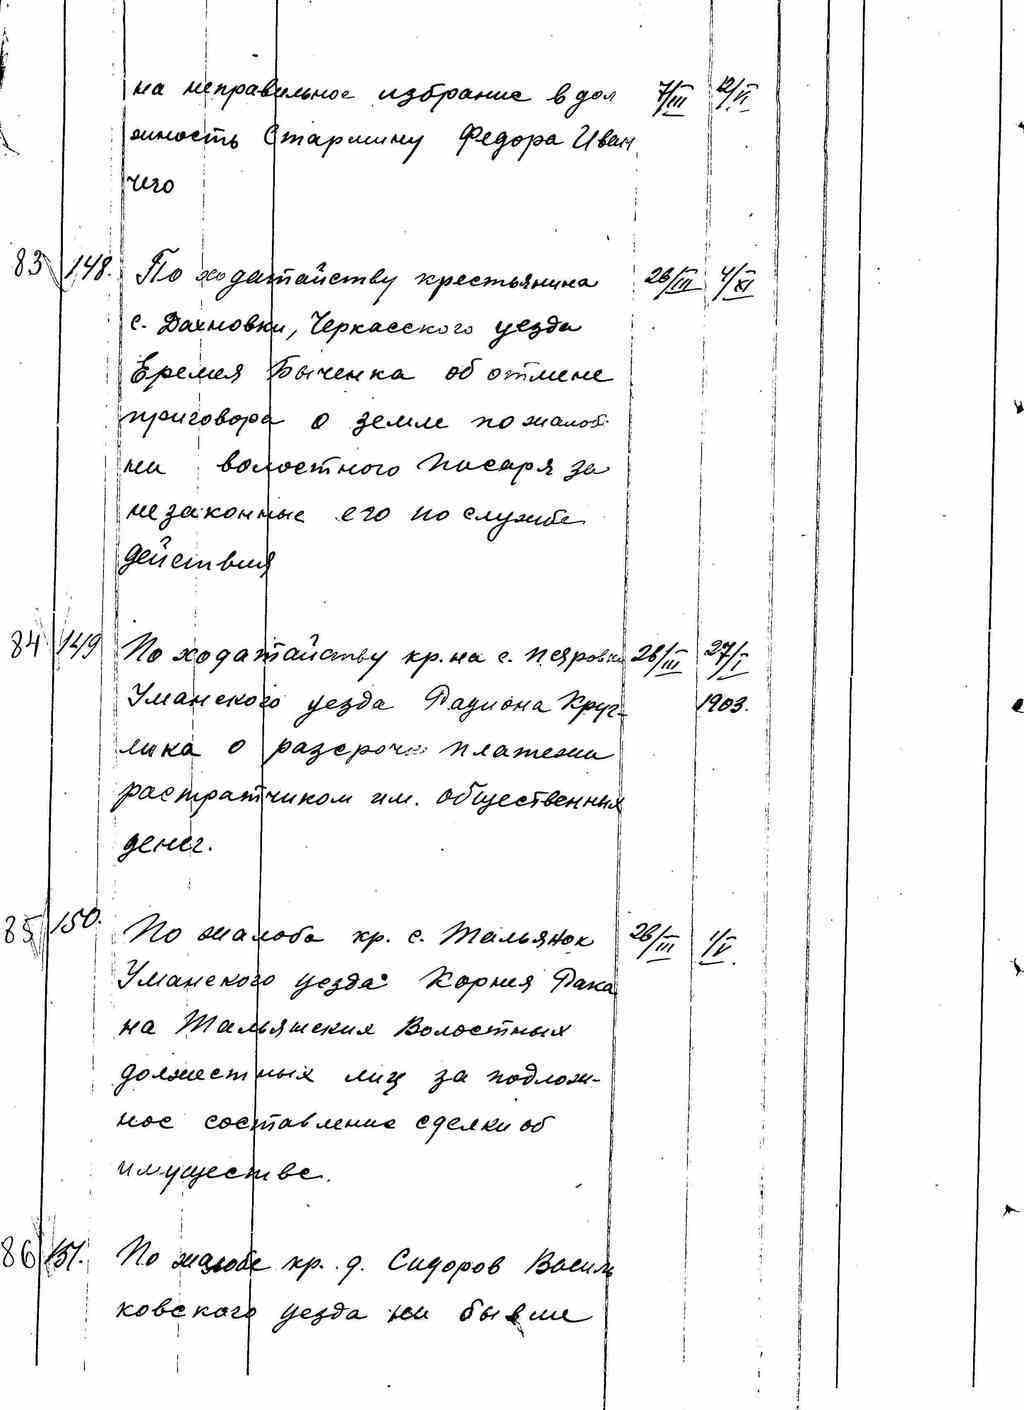 на неправильное избрание в дол 7/III 12/VI
жность Старшину Федора Иван
чего
83 148. По ходатайству крестьянина 26/III 4/XI
с. Дахновки, Черкасского уезда
Еремея Быченка об отмене
приговора о земле по жалоб.
на волостного писаря за
незаконные его по службе
действия
84 149 По ходатайству кр.на с. 26/III 27/I
Уманского уезда Радиона Круг- 1903.
лика о разсрочке платежа
растратчиком им. общественных
денег.
85 150. По жалобе кр. с. Тальянок 26/III 1/V
Уманского уезда Корнея Рака
на Тальянских Волостных
должностных лиц за подлож-
ное составление сделки об
имуществе.
86 151. По жалобе кр. д. Сидоров Василь
ковского уезда на бывше